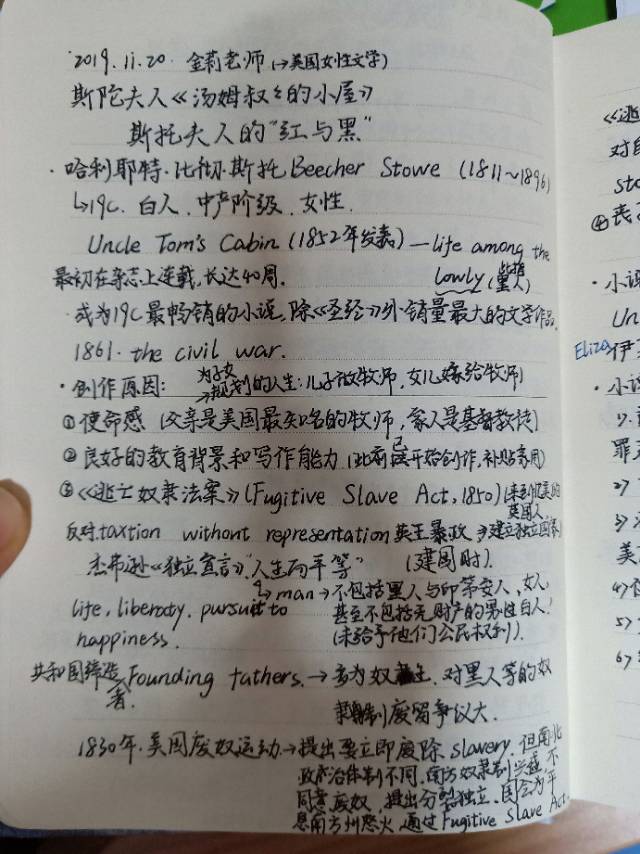 2019.11.20. 金莉老师(→美国女性文学)
斯陀夫人《汤姆叔叔的小屋》
斯托夫人的“红与黑”
·哈利耶特·比彻·斯托Beecher Stowe (1811~1896)
↳19C. 白人. 中产阶级. 女性.
Uncle Tom's Cabin (1852年发表) —life among the
lowly (黑人)
最初在杂志上连载,长达40周.
·成为19C最畅销的小说,除《圣经》外销量最大的文学作品.
1861. the civil war.
·创作原因: 为子女
→规划的人生:儿子做牧师,女儿嫁给牧师)
①使命感 (父亲是美国最知名的牧师,家人是基督教徒)
②良好的教育背景和写作能力 (此前已开始创作,补贴家用)
③《逃亡奴隶法案》(Fugitive Slave Act, 1850) (来到
英国人
反对taxtion without representation英王暴政 建立独立国家
杰弗逊《独立宣言》“人生而平等” (建国时).
↳man→不包括黑人与印第安人,女人,
life, liberty. pursuit to 甚至不包括无财产的男性白人!
happiness. (未给予他们公民权利).
共和国缔造者 Founding fathers.→多为奴隶主. 对黑人等的奴
隶制废留争议大.
1830年.美国废奴运动→提出要立即废除slavery. 但南北
政治体制不同.南方奴隶制 不
同意废奴,提出分裂独立.国会为平
息南方州怒火,通过Fugitive Slave Act.
《逃
对自
sto
④丧
·小说
Un
Eliza伊
·小说
1).
罪
2)
3)
美
4)
5)
6)